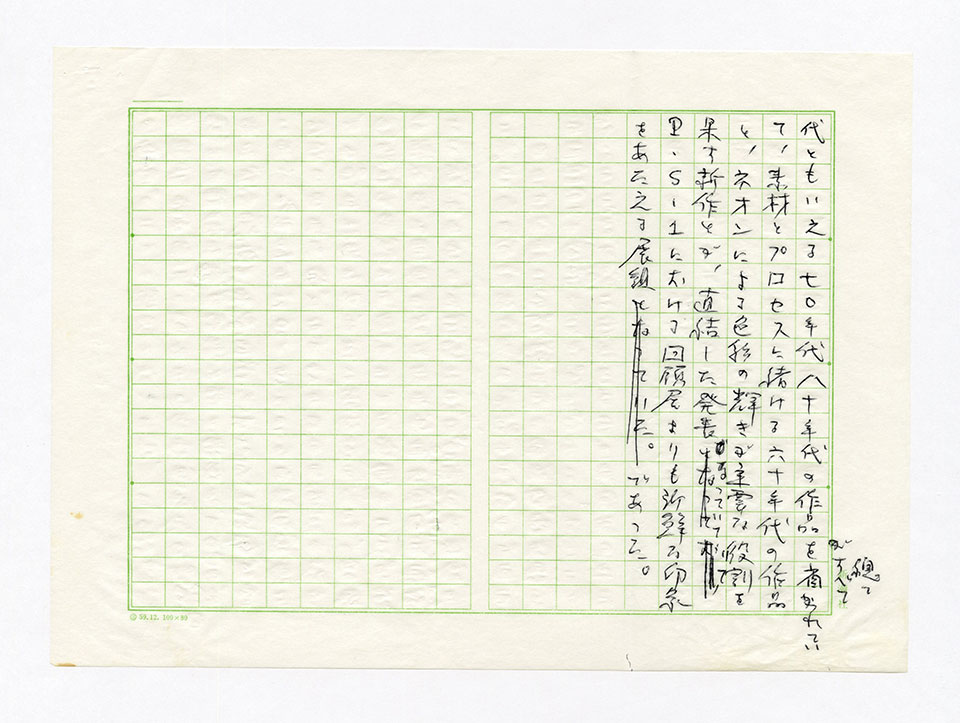 代ともいえる七〇年代八十年代の作品を省かれてい
がすべて
總て
て、素材とプロセスに緒ける六十年代の作品
と、ネオンによる色彩の輝きが主要な役割を
果す新作とが、直結した発表
なっていて
里、S-1における回顧展よりも新鮮な印象
をあたえる展観となっていた。であった。
59.12. 100×89